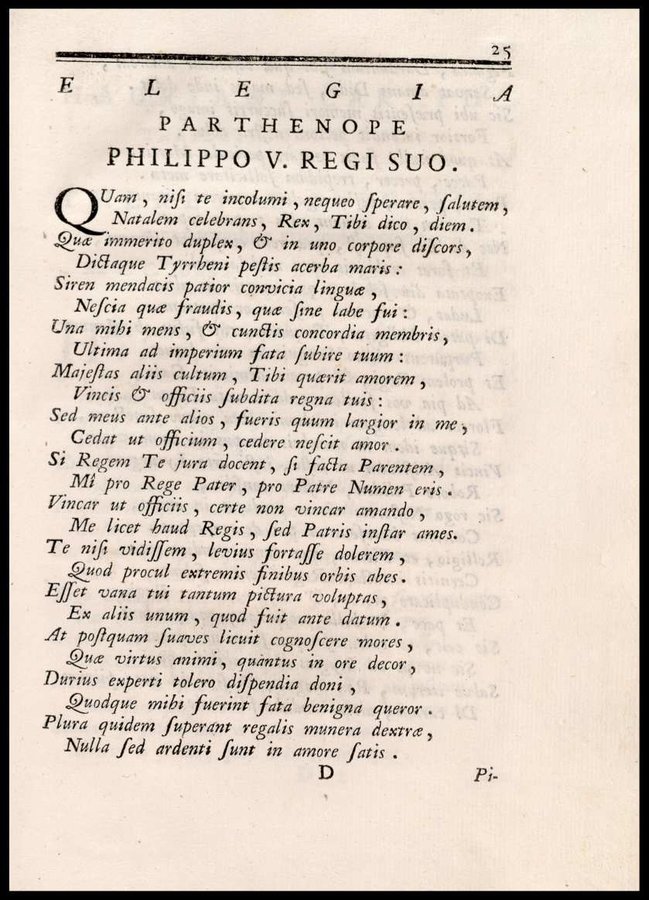 25
ELEGIA
PARTHENOPE
PHILIPPO V. REGI SUO.
QUam, niſi te incolumi, nequeo ſperare, ſalutem,
Natalem celebrans, Rex, Tibi dico, diem.
Quæ immerito duplex, & in uno corpore diſcors,
Dictaque Tyrrheni peſtis acerba maris:
Siren mendacis patior convicia linguæ,
Neſcia quæ fraudis, quæ ſine labe fui:
Una mihi mens, & cunctis concordia membris,
Ultima ad imperium fata ſubire tuum:
Majeſtas aliis cultum, Tibi quærit amorem,
Vincis & officiis ſubdita regna tuis:
Sed meus ante alios, fueris quum largior in me,
Cedat ut officium, cedere neſcit amor.
Si Regem Te jura docent, ſi facta Parentem,
Mî pro Rege Pater, pro Patre Numen eris.
Vincar ut officiis, certe non vincar amando,
Me licet haud Regis, ſed Patris inſtar ames.
Te niſi vidiſſem, levius fortaſſe dolerem,
Quod procul extremis finibus orbis abes.
Eſſet vana tui tantum pictura voluptas,
Ex aliis unum, quod fuit ante datum.
At poſtquam ſuaves licuit cognoſcere mores,
Quæ virtus animi, quantus in ore decor,
Durius experti tolero diſpendia doni,
Quodque mihi fuerint fata benigna queror.
Plura quidem ſuperant regalis munera dextræ,
Nulla ſed ardenti ſunt in amore ſatis.
D
Pi-